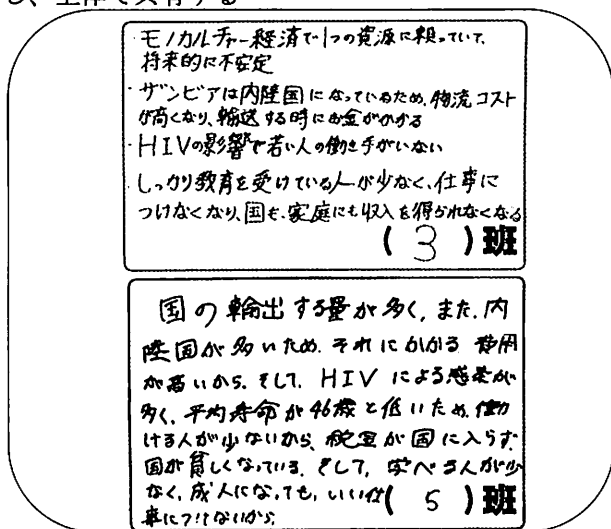 し、全体で共有する
・モノカルチャー経済で1つの資源に頼っていて、
将来的に不安定
・ザンビアは内陸国になっているため、物流コスト
が高くなり、輸送する時にお金がかかる
・HIVの影響で若い人の働き手がいない
・しっかり教育を受けている人が少なく、仕事に
つけなくなり、国も、家庭にも収入を得られなくなる
(3)班
国の輸出する量が多く、また、内
陸国が多いため、それにかかる費用
が高いから。そして、HIVによる感染が
多く、平均寿命が46歳と低いため、働
ける人が少ないから、税金が国に入らず、
国が貧しくなっている。そして、学べる人が少
なく、成人になっても、いい仕
事につけないから。
(5)班